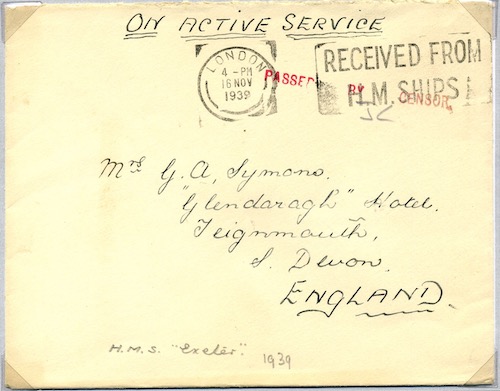 ON ACTIVE SERVICE
LONDON
4 - PM
16 NOV
1939
RECEIVED FROM
H.M. SHIPS
PASSED BY CENSOR.
Mrs G. A. Symons.
"Glendaragh" Hotel.
Teignmouth,
S. Devon.
ENGLAND.
H.M.S. "Exeter". 1939